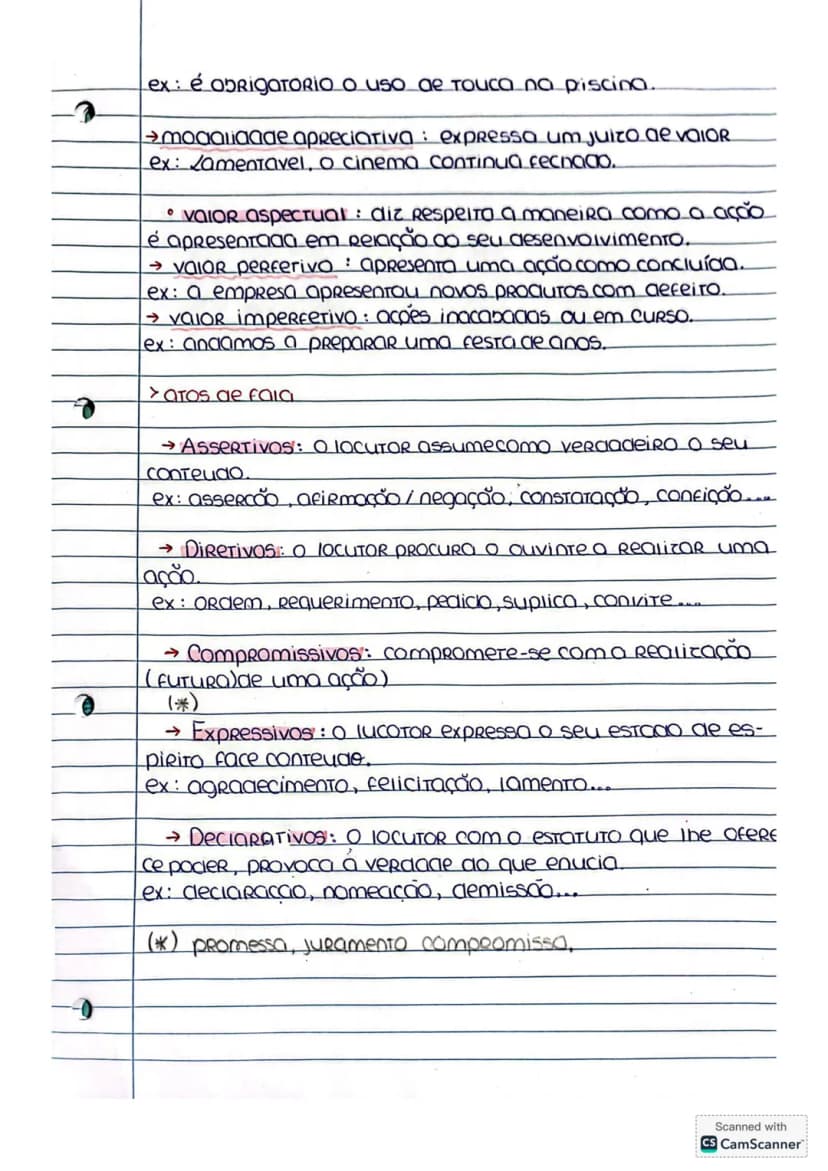 ex: é obrigatorio o uso de touca na piscina.
→modalidade apreciativa : expressa um juizo de valor
ex: Lamentavel, o cinema continua fechado.
° valor aspectual : diz respeito a maneira como a ação
é apresentada em relação ao seu desenvolvimento.
→ valor perfetivo : apresenta uma ação como concluída.
ex: a empresa apresentou novos produtos com defeito.
→ valor imperfetivo : ações inacabadas ou em curso.
ex: andamos a preparar uma festa de anos.
> atos de fala
→ Assertivos: o locutor assume como verdadeiro o seu
conteudo.
ex: asserção, afirmação / negação, constatação, confição....
→ Diretivos: o locutor procura o ouvinte a realizar uma
ação.
ex: ordem, requerimento, pedido, suplica, convite....
→ Compromissivos: compromete-se com a realização
(futura)de uma ação)
(*)
→ Expressivos : o lucotor expressa o seu estado de es-
pieito face conteudo.
ex: agradecimento, felicitação, lamento...
→ Declarativos: o locutor com o estatuto que lhe ofere
ce poder, provoca á verdade do que enucia.
ex: declaração, nomeação, demissão...
(*) promessa, juramento compromisso.
Scanned with
CS CamScanner